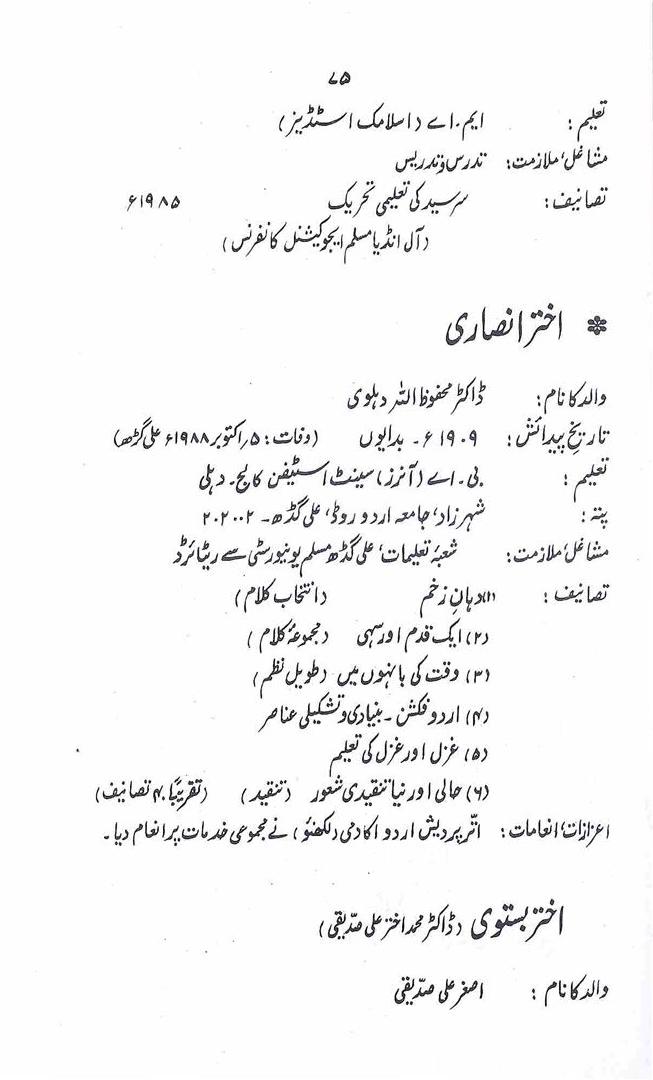 ۷۵
تعلیم : ایم.اے (اسلامک اسٹڈیز)
مشاغل، ملازمت : تدرس و تدریس
تصانیف : سرسید کی تعلیمی تحریک ۱۹۸۵ء
(آل انڈیا مسلم ایجوکیشنل کانفرنس)
❋ اختر انصاری
والد کا نام : ڈاکٹر محفوظ اللہ دہلوی
تاریخ پیدائش : ۱۹۰۹ء ۔ بدایوں (وفات : ۵ اکتوبر ۱۹۸۸ء علی گڑھ)
تعلیم : بی ۔ اے (آنرز) سینٹ اسٹیفن کالج ۔ دہلی
پتہ : شہرزاد، جامعہ اردو روڈ، علی گڈھ ۔ ۲۰۲۰۰۲
مشاغل، ملازمت : شعبۂ تعلیمات، علی گڈھ مسلم یونیورسٹی سے ریٹائرڈ
تصانیف : (۱) دہانِ زخم (انتخاب کلام)
(۲) ایک قدم اور سہی (مجموعۂ کلام)
(۳) وقت کی بانہوں میں (طویل نظم)
(۴) اردو فکشن ۔ بنیادی و تشکیلی عناصر
(۵) غزل اور غزل کی تعلیم
(۶) حالی اور نیا تنقیدی شعور (تنقید) (تقریبًا ۴۰ تصانیف)
اعزازات، انعامات : اتر پردیش اردو اکادمی (لکھنؤ) نے مجموعی خدمات پر انعام دیا ۔
اختر بستوی (ڈاکٹر محمد اختر علی صدّیقی)
والد کا نام : اصغر علی صدّیقی